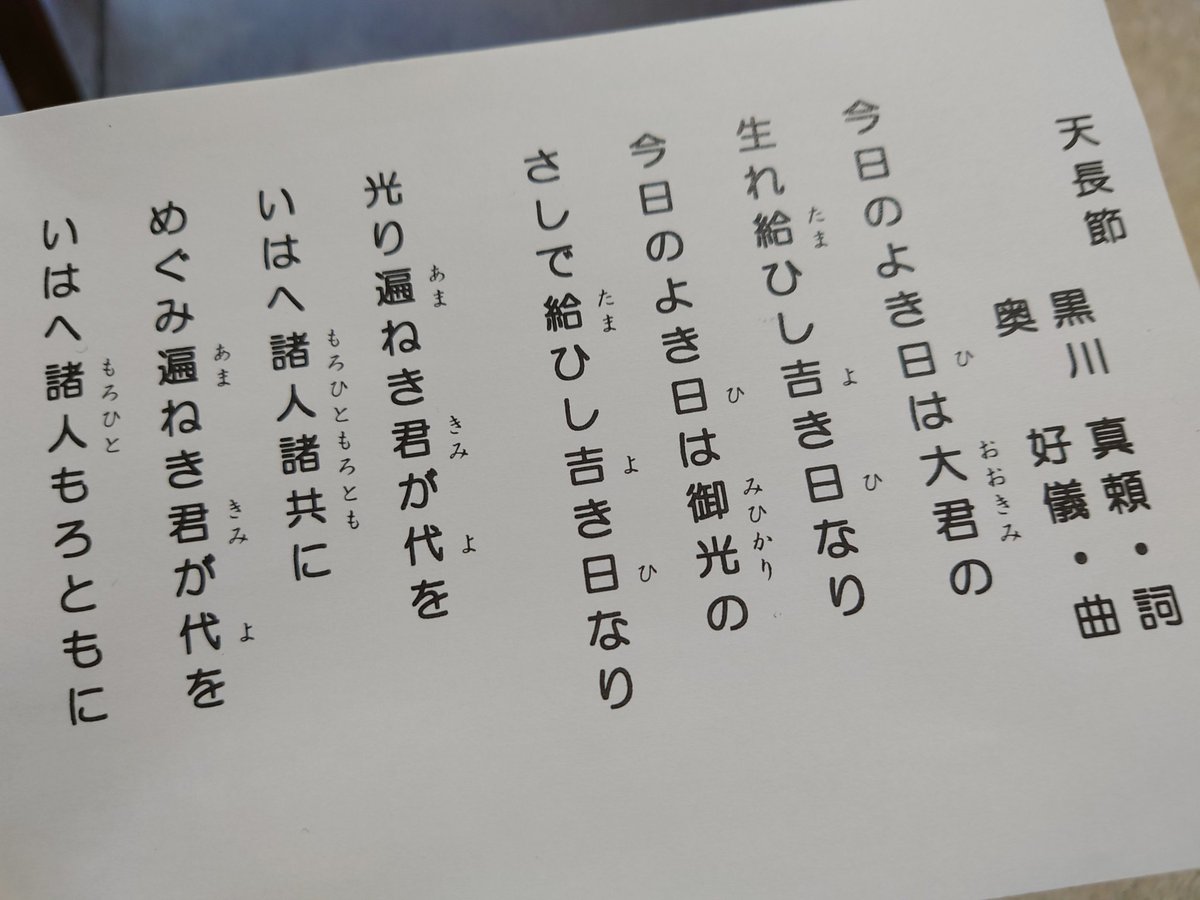 天長節　黒川 真頼・詞
奥 好儀・曲
今日のよき日は大君の
生れ給ひし吉き日なり
今日のよき日は御光の
さしで給ひし吉き日なり
光り遍ねき君が代を
いはへ諸人諸共に
めぐみ遍ねき君が代を
いはへ諸人もろともに
ひ
おおきみ
たま
よ
ひ
ひ
みひかり
たま
よ
ひ
あま
きみ
よ
もろひともろとも
あま
きみ
よ
もろひと